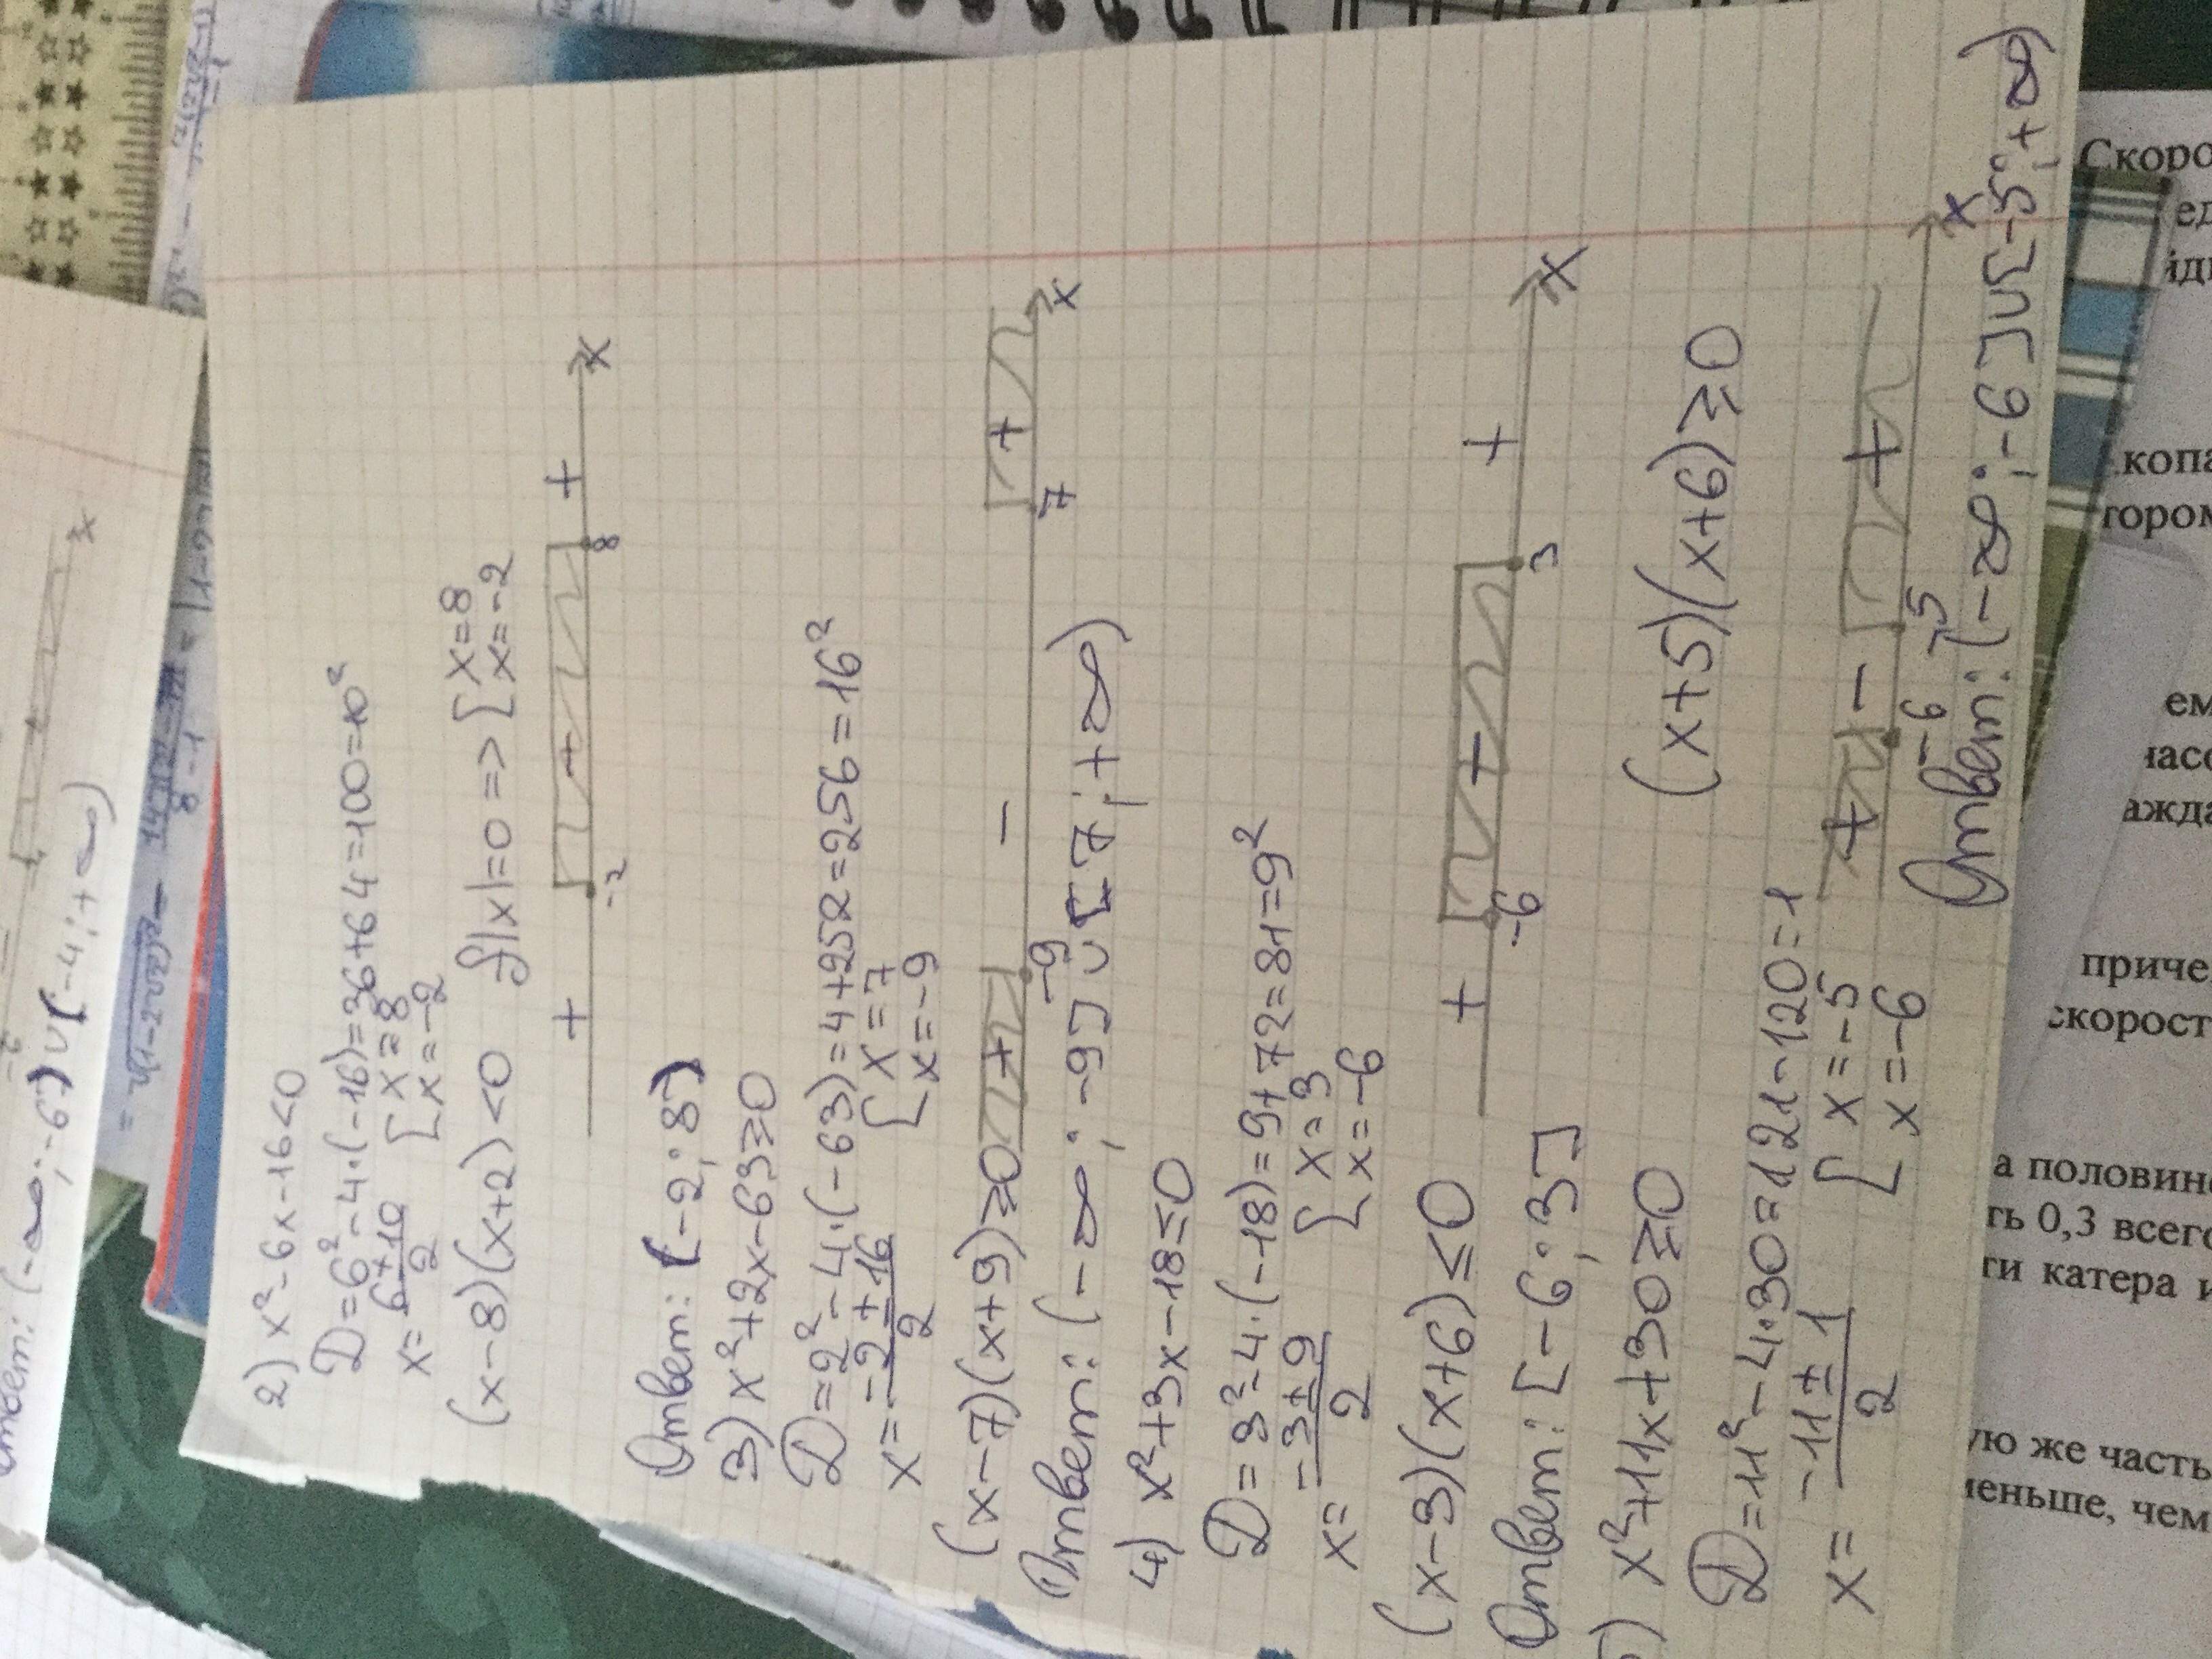 (-∞; -6) ∪ (-4; +∞)
2) x² - 6x - 16 < 0
D = 6² - 4·(-16) = 36 + 64 = 100 = 10²
x = 6 ± 10 / 2 [ x = 8
x = -2
(x - 8)(x + 2) < 0 f(x) = 0 => [ x = 8
x = -2
+ + + x
-2 8
Ответ: (-2; 8)
3) x² + 2x - 63 ≥ 0
D = 2² - 4·(-63) = 4 + 252 = 256 = 16²
x = -2 ± 16 / 2 [ x = 7
x = -9
(x - 7)(x + 9) ≥ 0 + - + x
-9 7
Ответ: (-∞; -9] ∪ [7; +∞)
4) x² + 3x - 18 ≤ 0
D = 3² - 4·(-18) = 9 + 72 = 81 = 9²
x = -3 ± 9 / 2 [ x = 3
x = -6
(x - 3)(x + 6) ≤ 0 + + + x
-6 3
Ответ: [-6; 3]
5) x² + 11x + 30 ≥ 0 (x + 5)(x + 6) ≥ 0
D = 11² - 4·30 = 121 - 120 = 1
x = -11 ± 1 / 2 [ x = -5
x = -6
+ - + x
-6 -5
Ответ: (-∞; -6] ∪ [-5; +∞)
Скоро
копа
тором
ем
часо
ажда
приче
скорост
а половин
ть 0,3 всего
ти катера и
ую же часть
меньше, чем